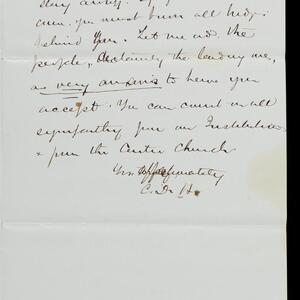 stay away. If you
come you must burn all bridges
behind you. Let me add. the
people, certainly the leading ones,
are very anxious to have you
accept. You can count on all
sympathy from our Institution
& from the Centre Church.
Yrs. affectionately
C. D. H.